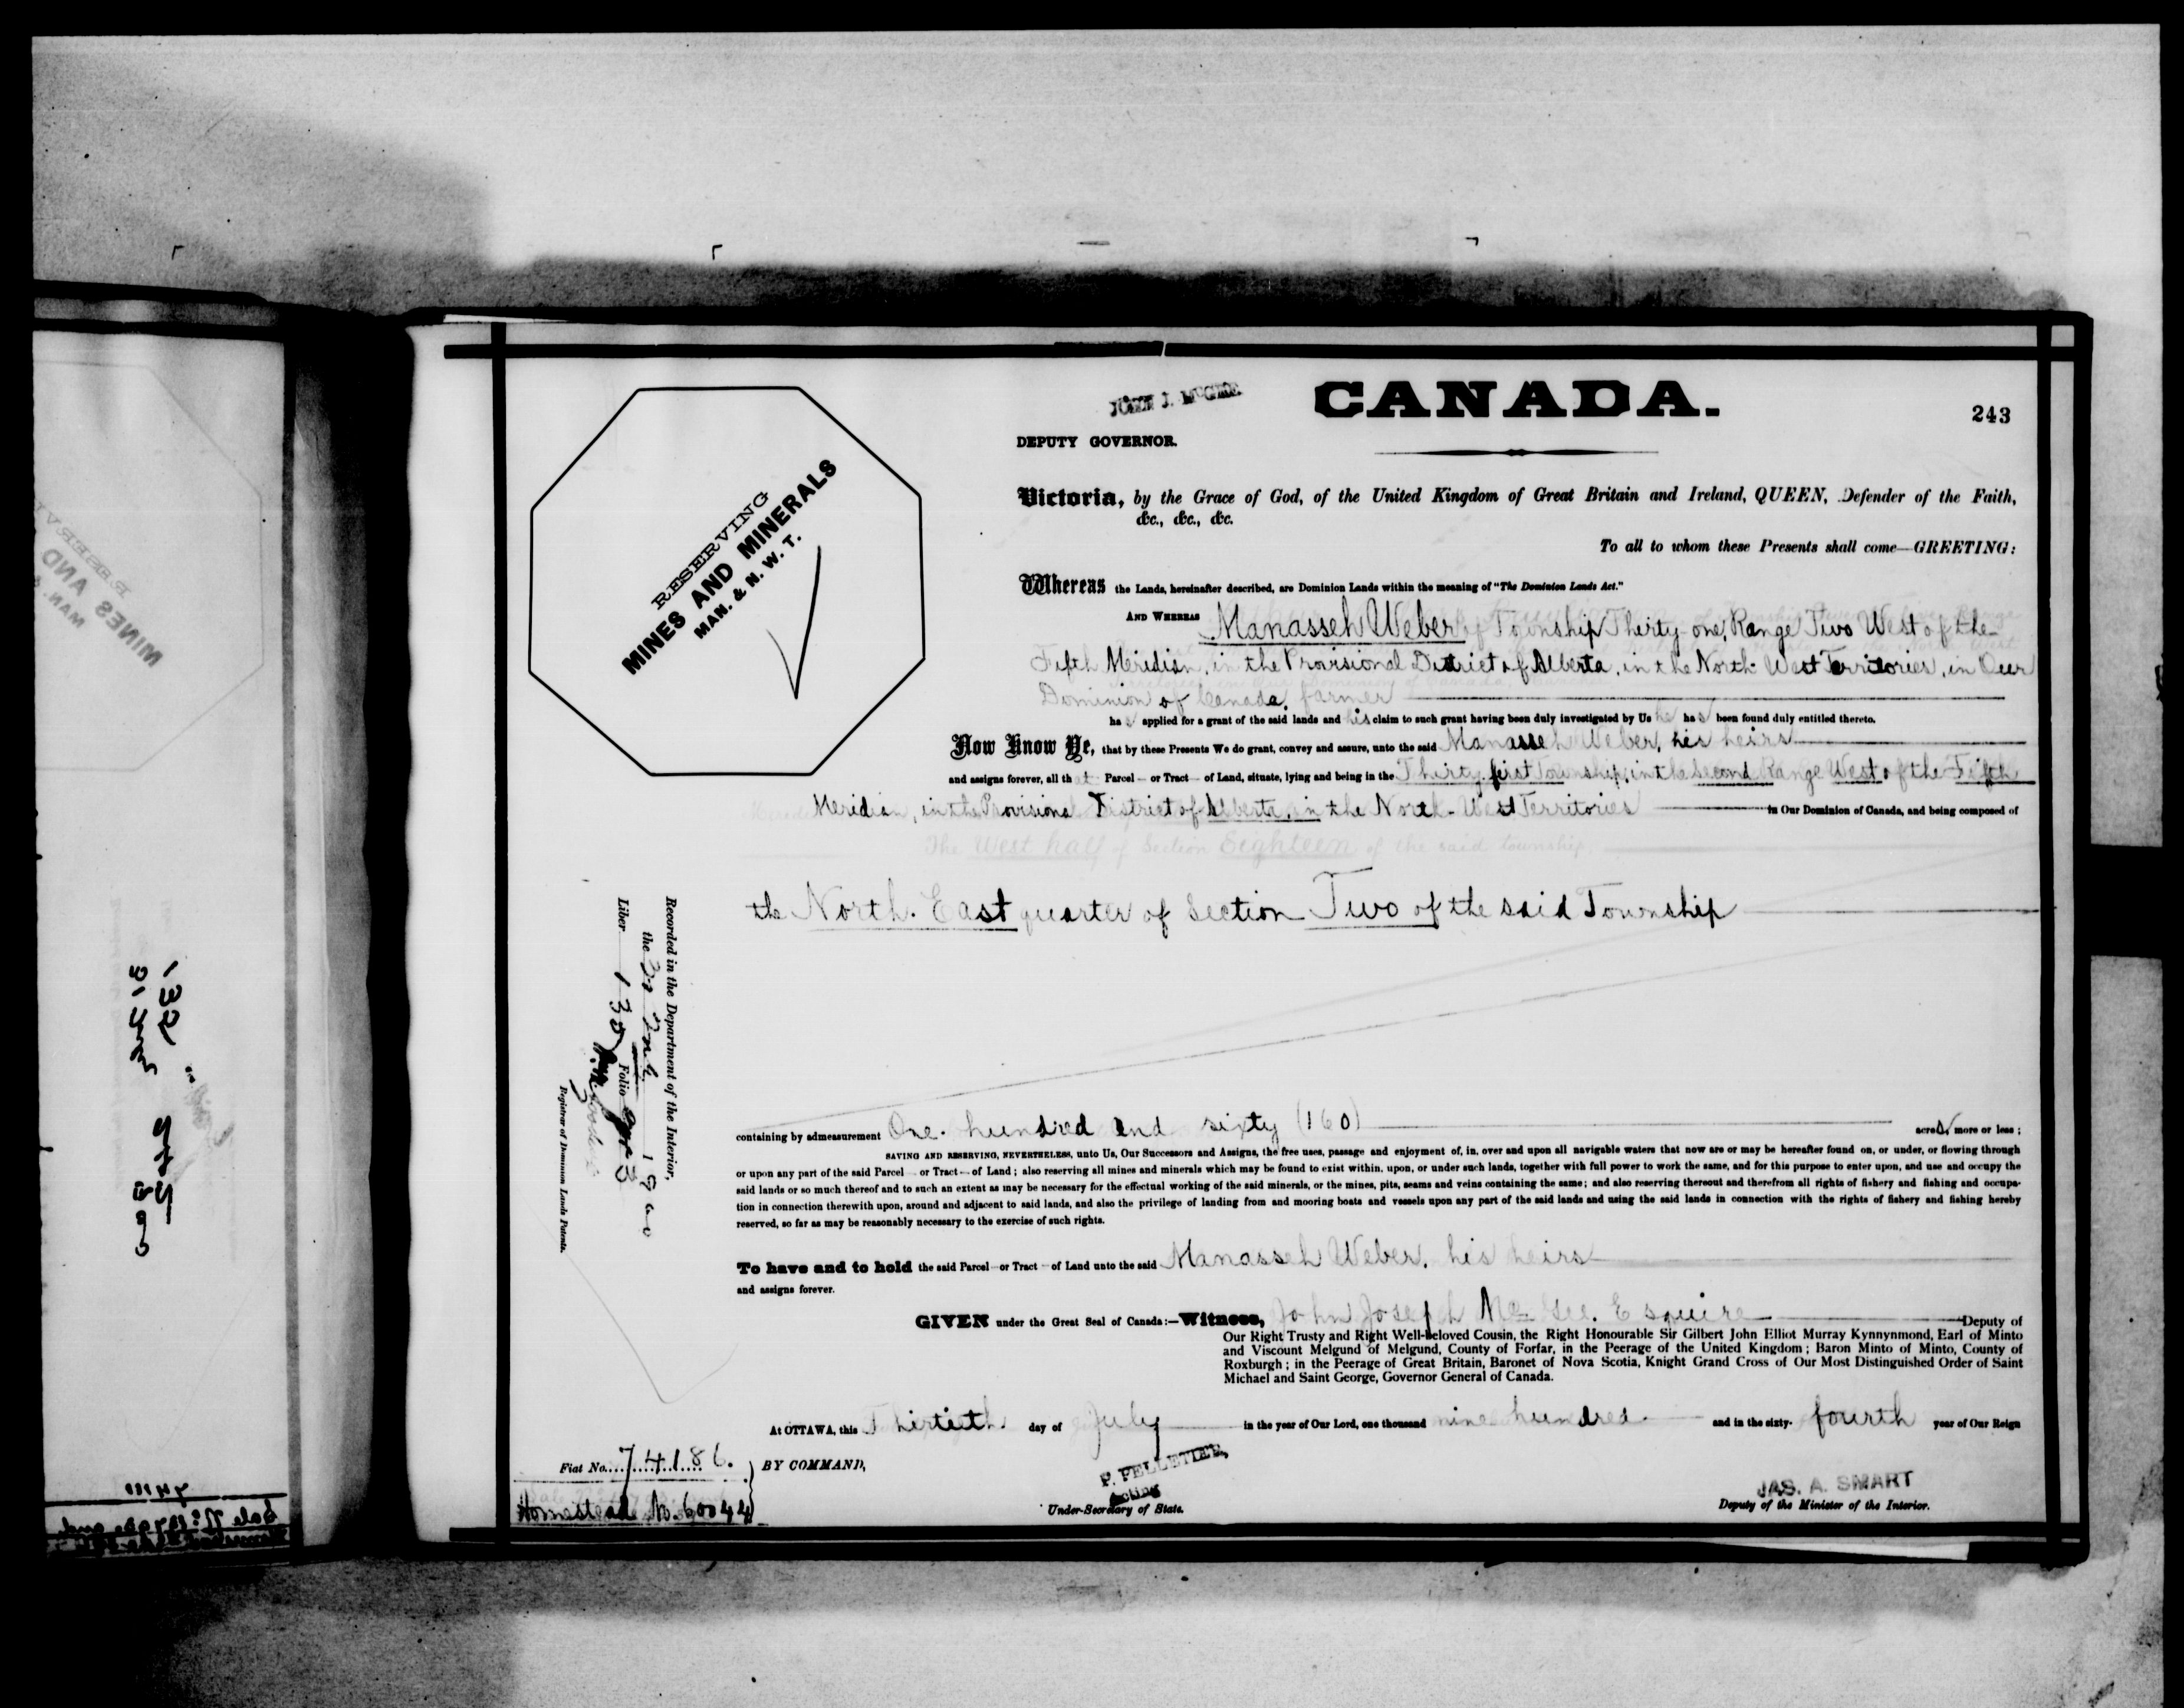 JOHN J. McGEE
CANADA.
243
DEPUTY GOVERNOR.
RESERVING
MINES AND MINERALS
MAN. & N. W. T.
Victoria, by the Grace of God, of the United Kingdom of Great Britain and Ireland, QUEEN, Defender of the Faith,
&c., &c., &c.
To all to whom these Presents shall come—GREETING:
Whereas the Lands, hereinafter described, are Dominion Lands within the meaning of "The Dominion Lands Act."
AND WHEREAS Manasseh Weber of Township Thirty-one, Range Two West of the
Fifth Meridian, in the Provisional District of Alberta, in the North-West Territories, in Our
Dominion of Canada, farmer
has applied for a grant of the said lands and his claim to such grant having been duly investigated by Us he has been found duly entitled thereto.
Now Know Ye, that by these Presents We do grant, convey and assure, unto the said Manasseh Weber, his heirs
and assigns forever, all that Parcel or Tract of Land, situate, lying and being in the Thirty-first Township, in the Second Range West of the Fifth
Meridian, in the Provisional District of Alberta, in the North-West Territories in Our Dominion of Canada, and being composed of
The West half of Section Eighteen of the said township
the North-East quarter of Section Two of the said Township
containing by admeasurement One hundred and sixty (160) acres, more or less;
SAVING AND RESERVING, NEVERTHELESS, unto Us, Our Successors and Assigns, the free uses, passage and enjoyment of, in, over and upon all navigable waters that now are or may be hereafter found on, or under, or flowing through
or upon any part of the said Parcel or Tract of Land; also reserving all mines and minerals which may be found to exist within, upon, or under such lands, together with full power to work the same, and for this purpose to enter upon, and use and occupy the
said lands or so much thereof and to such an extent as may be necessary for the effectual working of the said minerals, or the mines, pits, seams and veins containing the same; and also reserving thereout and therefrom all rights of fishery and fishing and occupa-
tion in connection therewith upon, around and adjacent to said lands, and also the privilege of landing from and mooring boats and vessels upon any part of the said lands and using the said lands in connection with the rights of fishery and fishing hereby
reserved, so far as may be reasonably necessary to the exercise of such rights.
To have and to hold the said Parcel or Tract of Land unto the said Manasseh Weber, his heirs
and assigns forever.
GIVEN under the Great Seal of Canada:—Witness, John Joseph McGee, Esquire Deputy of
Our Right Trusty and Right Well-beloved Cousin, the Right Honourable Sir Gilbert John Elliot Murray Kynnynmond, Earl of Minto
and Viscount Melgund of Melgund, County of Forfar, in the Peerage of the United Kingdom; Baron Minto of Minto, County of
Roxburgh; in the Peerage of Great Britain, Baronet of Nova Scotia, Knight Grand Cross of Our Most Distinguished Order of Saint
Michael and Saint George, Governor General of Canada.
At OTTAWA, this Thirtieth day of July in the year of Our Lord, one thousand nine hundred and in the sixty-fourth year of Our Reign
Fiat No. 74186.
BY COMMAND,
Homestead No. 60044
P. PELLETIER,
Acting
Under-Secretary of State.
JAS. A. SMART
Deputy of the Minister of the Interior.
Recorded in the Department of the Interior,
the 31 July 1900
Liber 130 Folio
Registrar of Dominion Lands Patents.